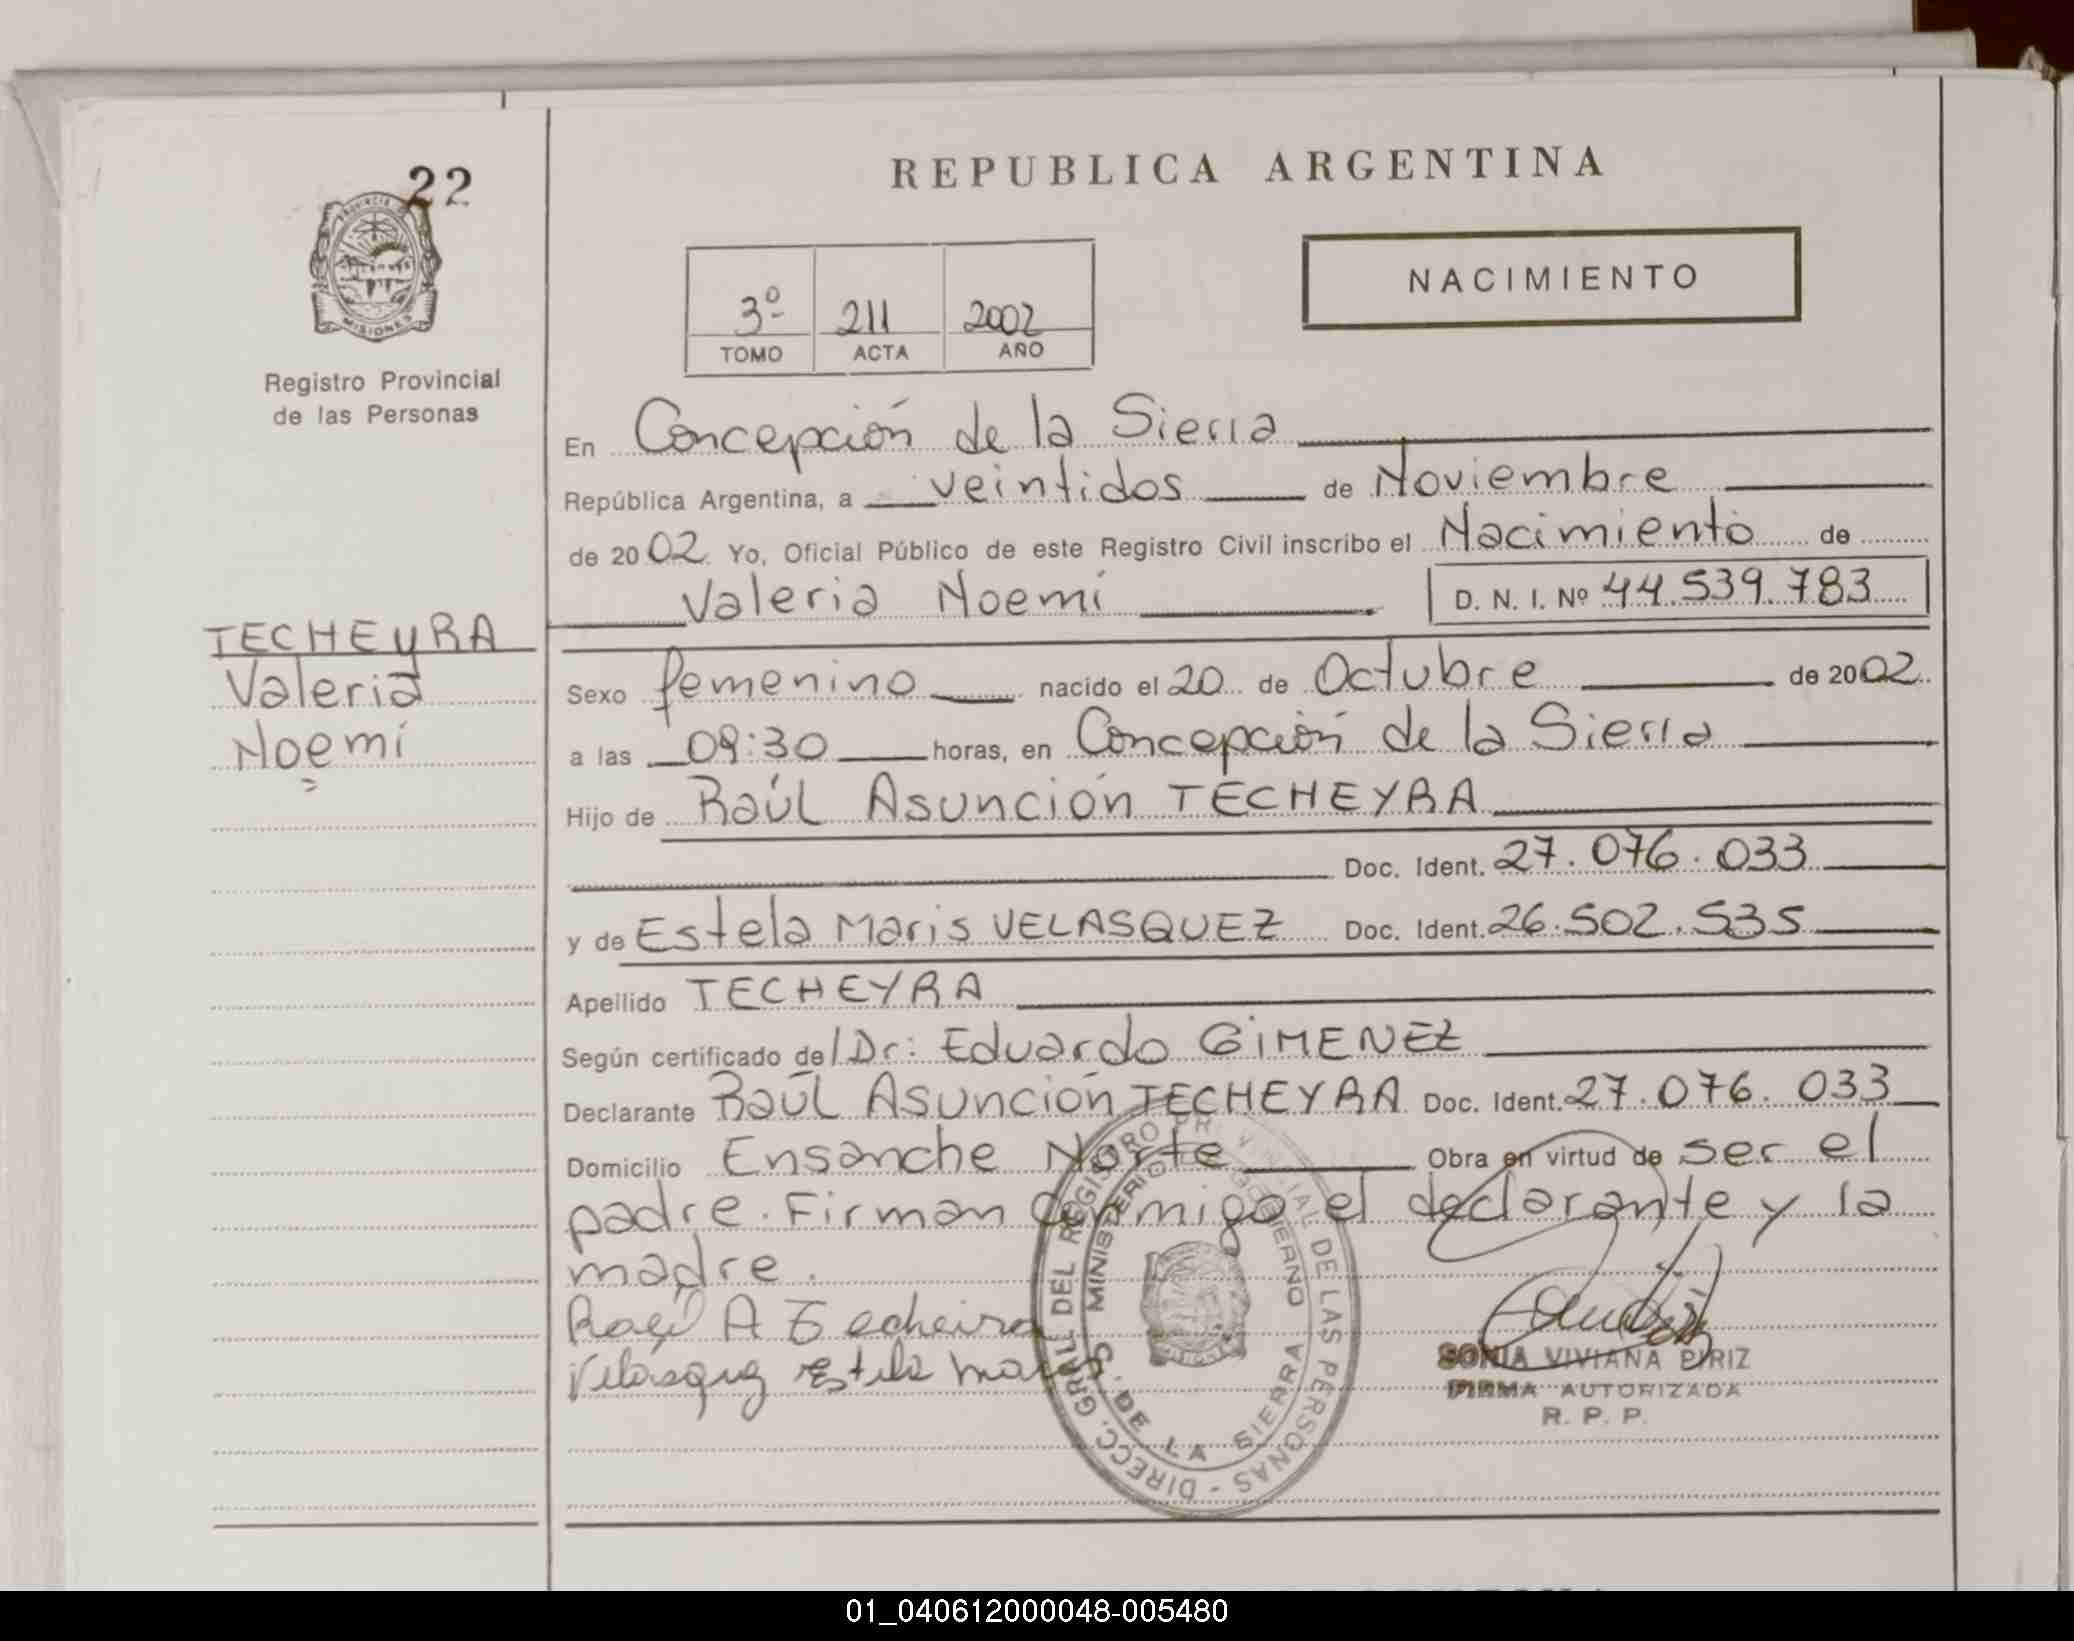 22
PROVINCIA
MISIONES
Registro Provincial
de las Personas
TECHEYRA
Valeria
Noemí
REPUBLICA ARGENTINA
NACIMIENTO
3º 211 2002
TOMO ACTA AÑO
En Concepción de la Sierra
República Argentina, a veintidos de Noviembre
de 2002 Yo, Oficial Público de este Registro Civil inscribo el Nacimiento de
Valeria Noemí D. N. I. Nº 44.539.783
Sexo femenino nacido el 20 de Octubre de 2002
a las 09:30 horas, en Concepción de la Sierra
Hijo de Raúl Asunción TECHEYRA
Doc. Ident. 27.076.033
y de Estela Maris VELASQUEZ Doc. Ident. 26.502.535
Apellido TECHEYRA
Según certificado del Dr: Eduardo GIMENEZ
Declarante Raúl Asunción TECHEYRA Doc. Ident. 27.076.033
Domicilio Ensanche Norte Obra en virtud de ser el
padre. Firman conmigo el declarante y la
madre.
Raúl A Techeira
Velásquez Estela Maris
DIRECC. GRAL DEL REGISTRO PROVINCIAL DE LAS PERSONAS -
MINISTERIO GOBIERNO
C. DE LA SIERRA
SONIA VIVIANA PIRIZ
FIRMA AUTORIZADA
R. P. P.
01_040612000048-005480